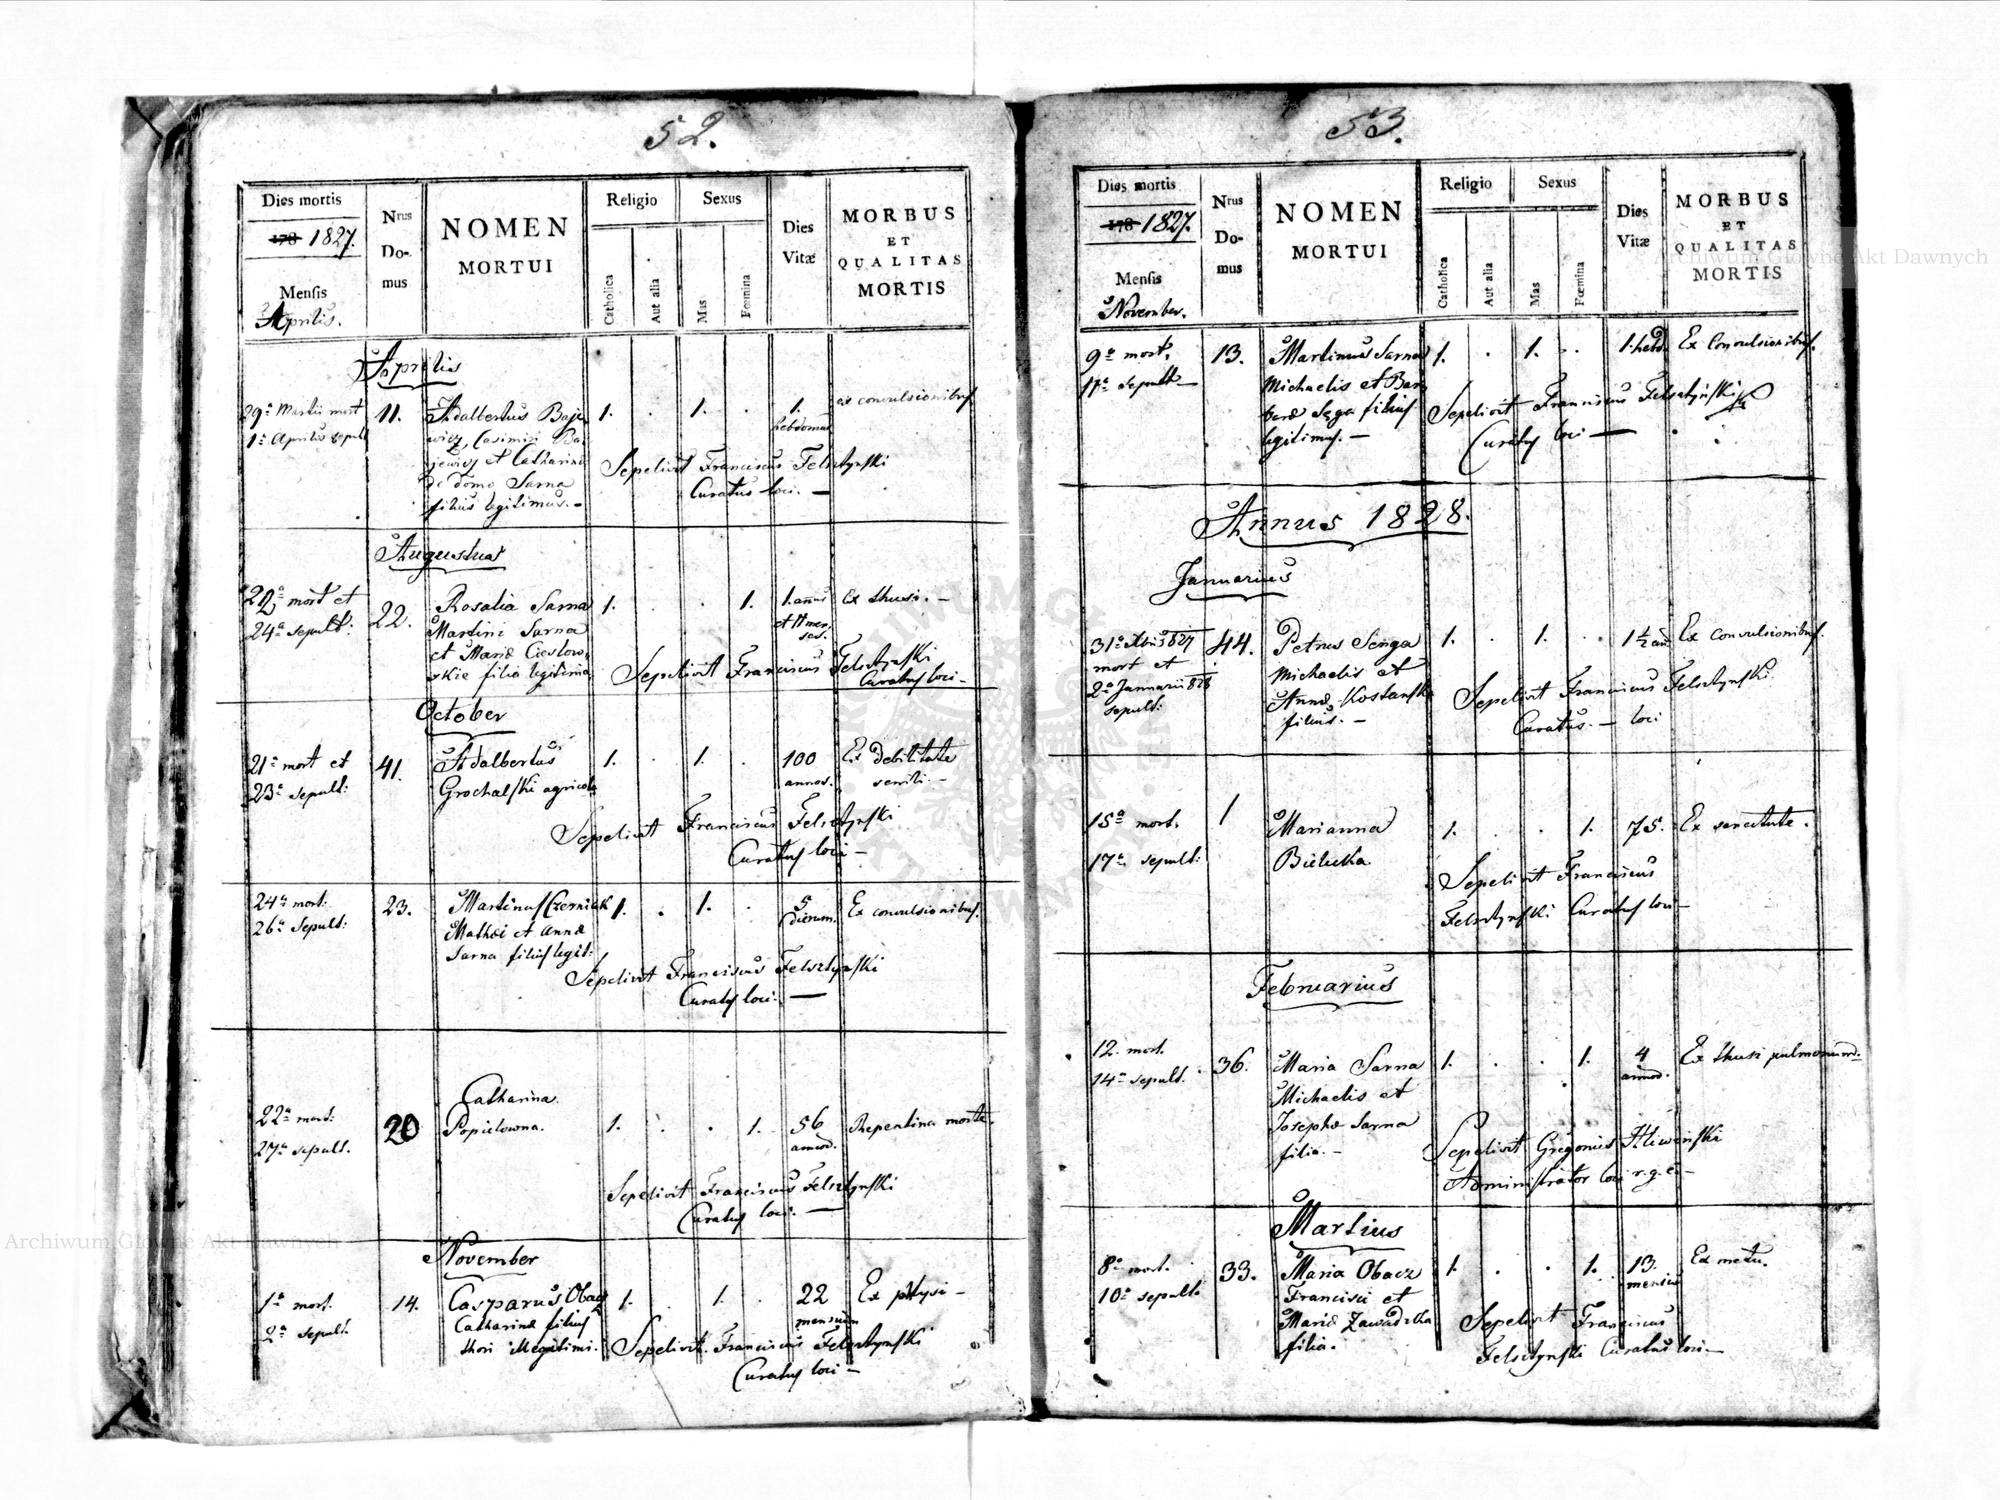 52.
Dies mortis
178 1827.
Mensis
Aprilis.
Nrus
Do-
mus
NOMEN
MORTUI
Religio
Catholica
Aut alia
Sexus
Mas
Fœmina
Dies
Vitæ
MORBUS
ET
QUALITAS
MORTIS
Aprilis
29a Martii mort 11. Adalbertus Baje 1. . 1. . 1. ex convulsionibus
1a Aprilis sepult wicz, Casimiri Ba hebdomas
jewicz et Catharina
de domo Sarna
filius legitimus. -
Sepelivit Franciscus Felsztynski
Curatus loci. —
Augustus
22a mort et 22. Rosalia Sarna 1. . . 1. 1. annus Ex thusi. -
24a sepult: Martini Sarna et 11 men
et Mariæ Cieslow ses.
skie filia legitima
Sepelivit Franciscus Felsztynski
Curatus loci -
October
21a mort et 41. Adalbertus 1. . 1. . 100 Ex debilitate
23a sepult: Grochalski agricola annos. senili. -
Sepelivit Franciscus Felsztynski
Curatus loci -
24a mort. 23. Martinus Czerniak 1. . 1. . 5 Ex convulsionibus.
26a Sepult: Mathæi et Annæ dierum.
Sarna filius legit:
Sepelivit Franciscus Felsztynski
Curatus loci. —
22a mort: 20 Catharina 1. . . 1. 56 Repentina morte.
27a sepult. Popielowna. annor.
Sepelivit Franciscus Felsztynski
Curatus loci. —
November
1a mort. 14. Casparus Obacz 1. . 1. . 22 Ex ptysi -
2a sepult. Catharinæ filius mensium
thori illegitimi.
Sepelivit Franciscus Felsztynski
Curatus loci -
53.
Dies mortis
178 1827.
Mensis
November.
Nrus
Do-
mus
NOMEN
MORTUI
Religio
Catholica
Aut alia
Sexus
Mas
Fœmina
Dies
Vitæ
MORBUS
ET
QUALITAS
MORTIS
9a mort. 13. Martinus Sarna 1. . 1. . 1. hebd. Ex Convulsionibus.
17a sepult Michaelis et Bar
baræ Sęga filius
legitimus. -
Sepelivit Franciscus Felsztyński
Curatus loci —
Annus 1828.
Januarius
31a Xbris 827 44. Petrus Senga 1. . 1. . 1½ an Ex convulsionibus.
mort et Michaelis et
2a Januarii 828 Annæ Kostansk
sepult: filius. -
Sepelivit Franciscus Felsztynski
Curatus. - loci
15a mort. 1 Marianna 1. . . 1. 75. Ex senectute.
17a sepult: Bielecka
Sepelivit Franciscus
Felsztynski Curatus loci -
Februarius
12. mort. 36. Maria Sarna 1. . . 1. 4 Ex thusi pulmonum.
14a sepult. Michaelis et annor.
Josephæ Sarna
filia. -
Sepelivit Gregorius
Administrator loci r.g.c. -
Martius
8a mort. 33. Maria Obacz 1. . . 1. 13. Ex metu.
10a sepult. Francisci et mensium
Mariæ Zawadzka
filia.
Sepelivit Franciscus
Felsztynski Curatus loci -
Archiwum Główne Akt Dawnych
Archiwum Główne Akt Dawnych